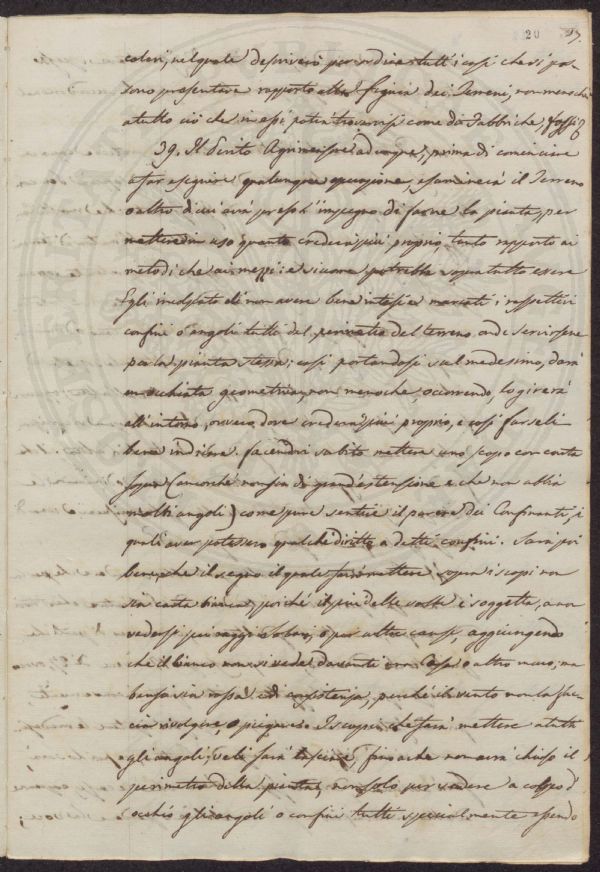 20 29.
colori, nel quale descriverò per ordine tutt'i casi che si pos-
sono presentare rapporto alla figura dei Terreni, non meno che
a tutto ciò che in essi potrà trovarsi come da Fabbriche, Fossi
39. Il Perito Agrimensore adunque, prima di cominciare
a far eseguire qualunque operazione, esaminerà il Terreno
o altro di cui avrà preso l'impegno di farne la pianta, per
mettere in uso quanto crederà più proprio, tanto rapporto ai
metodi che ai mezzi: e siccome potrebbe sopra tutto essere
Egli incolpato di non avere bene intesi e marcati i respettivi
confini o angoli tutti del perimetro del terreno onde servirsene
per la pianta stessa; così portandosi sul medesimo, darà
un'occhiata geometrica, non meno che, occorrendo, lo girerà
all'intorno, ovvero dove crederà più proprio, e così farseli
bene indicare facendovi subito mettere uno scopo con carta
sopra (ancorchè non sia di grand'estensione e che non abbia
molti angoli) come pure sentire il parere dei Confinanti, i
quali aver potessero qualche diritto a detti confini. Sarà poi
bene che il segno il quale farà mettere sopra i scopi non
sia carta bianca, poichè il più delle volte è soggetta, a non
vedersi pei raggi solari, o per altre cause, aggiungendo
che il bianco non si vede davanti una Casa o altro muro; ma
bensì sia rossa ed di consistenza, perchè il vento non la fac-
cia rivolgere, o piegare. I scopi che farà mettere a tutti
gli angoli, veli farà lasciare, fino a che non avrà chiuso il
perimetro della pianta, non solo per vedere a colpo d'
occhio gli angoli o confini tutti specialmente essendo